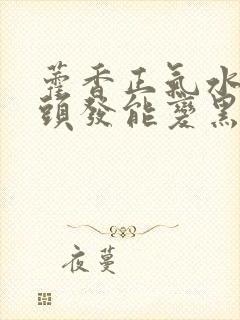 藿香正氣水
頭發能變黑
夜蔓